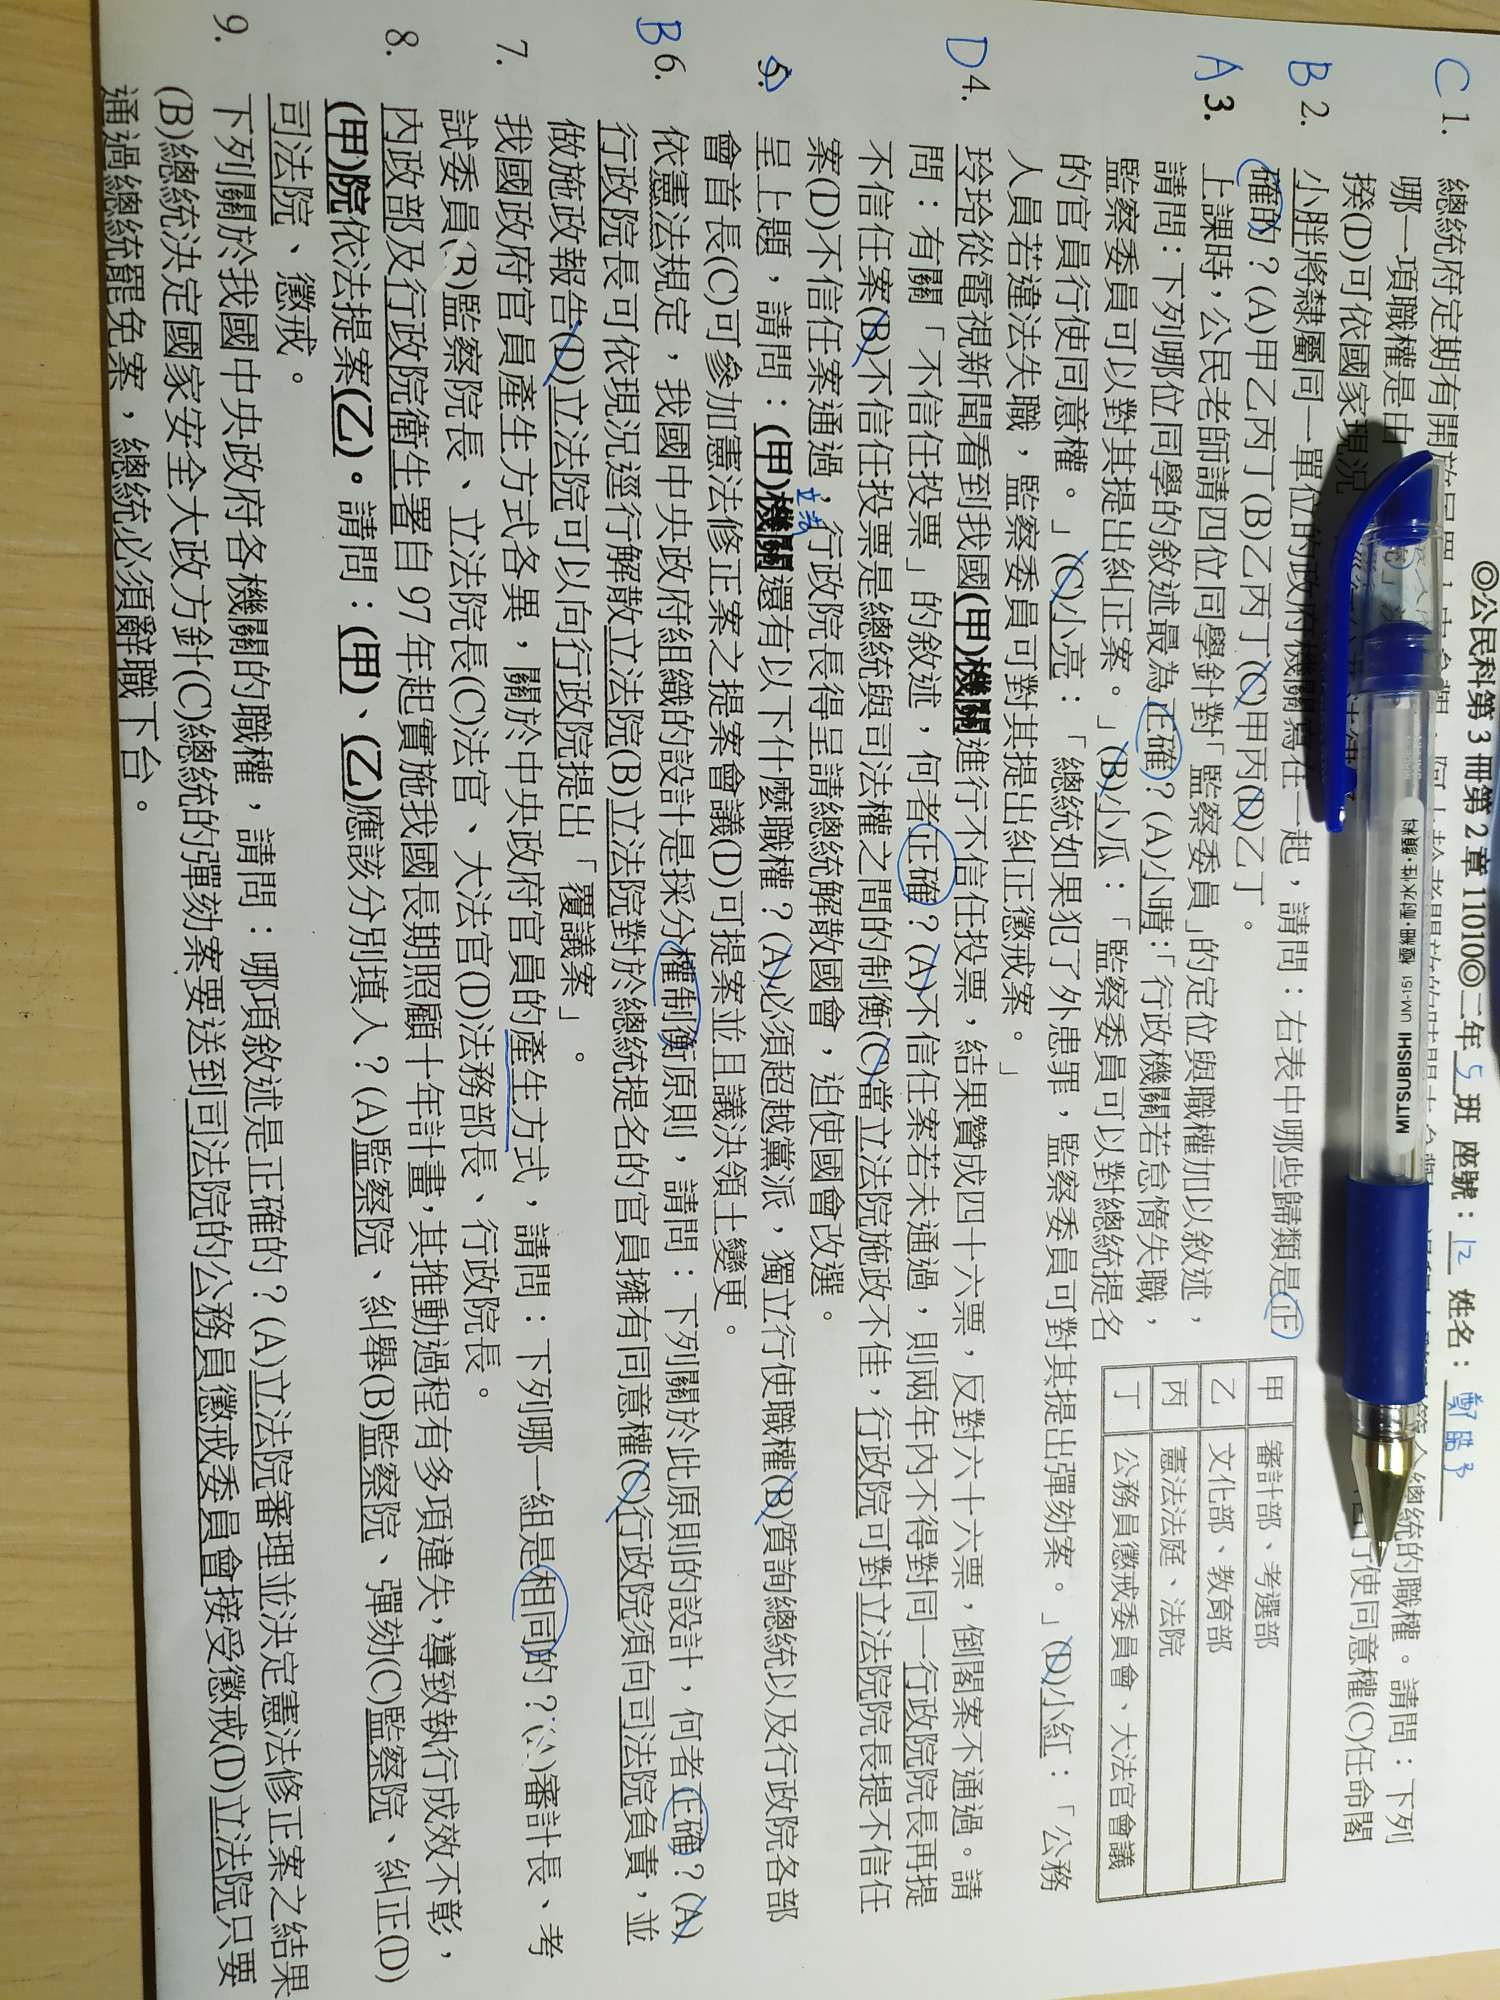 ◎公民科第3冊第2章11010◎二年 5 班 座號：12 姓名：鄭
C 1. 總統府定期有開放民眾
總統的職權。請問：下列
哪一項職權是由
使同意權(C)任命閣
揆(D)可依國家現況
B 2. 小胖將隸屬同一單位的政府機關寫在一起，請問：右表中哪些歸類是正
確的？(A)甲乙丙丁(B)乙丙丁(C)甲丙(D)乙丁。
甲 審計部、考選部
乙 文化部、教育部
丙 憲法法庭、法院
丁 公務員懲戒委員會、大法官會議
A 3. 上課時，公民老師請四位同學針對「監察委員」的定位與職權加以敘述，
請問：下列哪位同學的敘述最為正確？(A)小晴：「行政機關若怠惰失職，
監察委員可以對其提出糾正案。」(B)小瓜：「監察委員可以對總統提名
的官員行使同意權。」(C)小亮：「總統如果犯了外患罪，監察委員可對其提出彈劾案。」(D)小紅：「公務
人員若違法失職，監察委員可對其提出糾正懲戒案。」
D 4. 玲玲從電視新聞看到我國(甲)機關進行不信任投票，結果贊成四十六票，反對六十六票，倒閣案不通過。請
問：有關「不信任投票」的敘述，何者正確？(A)不信任案若未通過，則兩年內不得對同一行政院院長再提
不信任案(B)不信任投票是總統與司法權之間的制衡(C)當立法院施政不佳，行政院可對立法院院長提不信任
案(D)不信任案通過，行政院長得呈請總統解散國會，迫使國會改選。
立法
5. 呈上題，請問：(甲)機關還有以下什麼職權？(A)必須超越黨派，獨立行使職權(B)質詢總統以及行政院各部
會首長(C)可參加憲法修正案之提案會議(D)可提案並且議決領土變更。
B 6. 依憲法規定，我國中央政府組織的設計是採分權制衡原則，請問：下列關於此原則的設計，何者正確？(A)
行政院長可依現況逕行解散立法院(B)立法院對於總統提名的官員擁有同意權(C)行政院須向司法院負責，並
做施政報告(D)立法院可以向行政院提出「覆議案」。
7. 我國政府官員產生方式各異，關於中央政府官員的產生方式，請問：下列哪一組是相同的？(A)審計長、考
試委員(B)監察院長、立法院長(C)法官、大法官(D)法務部長、行政院長。
8. 內政部及行政院衛生署自97年起實施我國長期照顧十年計畫，其推動過程有多項違失，導致執行成效不彰，
(甲)院依法提案(乙)。請問：(甲)、(乙)應該分別填入？(A)監察院、糾舉(B)監察院、彈劾(C)監察院、糾正(D)
司法院、懲戒。
9. 下列關於我國中央政府各機關的職權，請問：哪項敘述是正確的？(A)立法院審理並決定憲法修正案之結果
(B)總統決定國家安全大政方針(C)總統的彈劾案要送到司法院的公務員懲戒委員會接受懲戒(D)立法院只要
通過總統罷免案，總統必須辭職下台。
MITSUBISHI UM-151 極細 耐水性・顏料